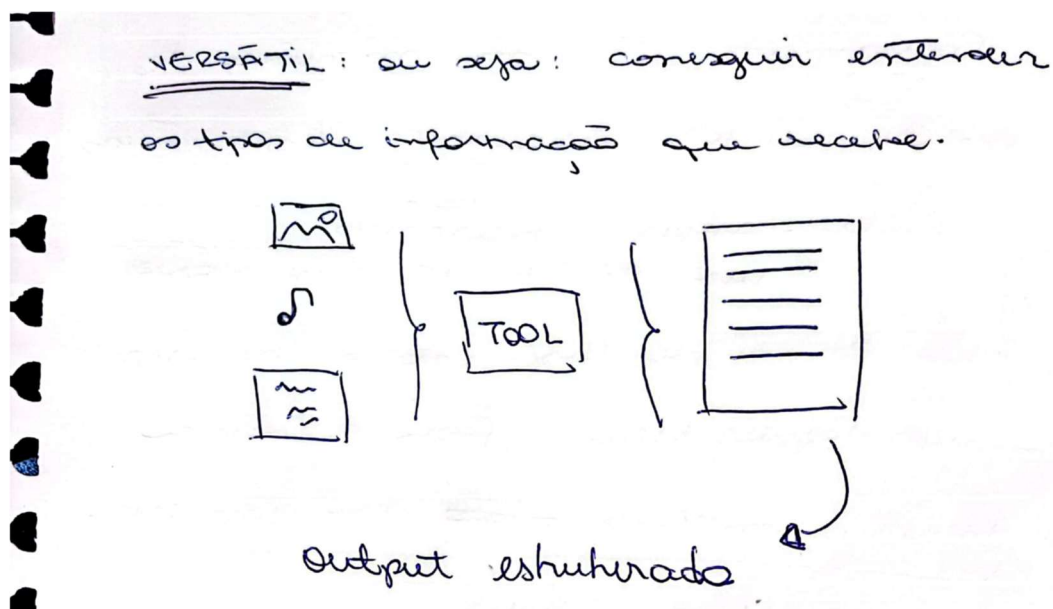 VERSÁTIL: ou seja: conseguir entender
os tipos de informação que recebe.
TOOL
Output estruturado